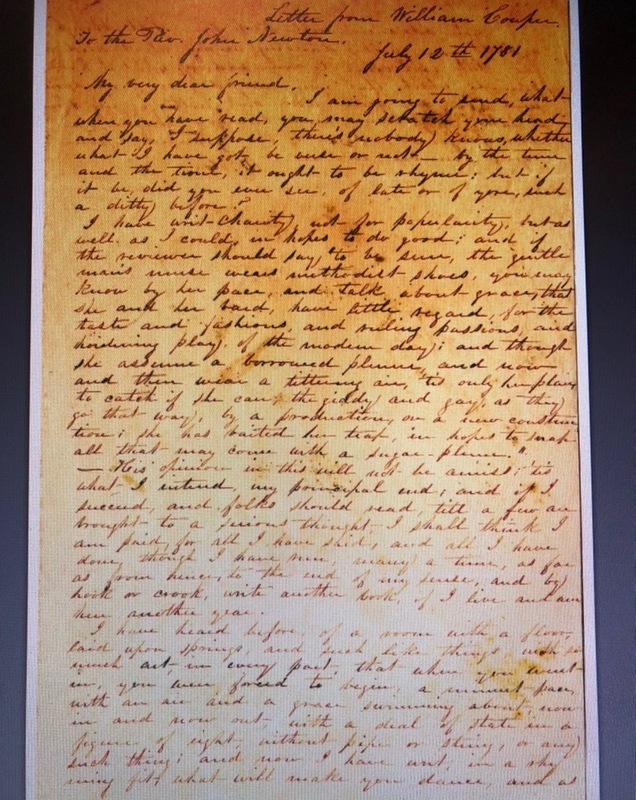 Letter from William Cowper.
To the Rev. John Newton.
July 12th 1781
My very dear friend,
I am going to send, what
when you have read, you may scratch your head,
and say, I suppose, there's nobody knows, whether
what I have got, be verse or not – by the tune
and the time, it ought to be rhyme; but if
it be, did you ever see, of late or of yore, such
a ditty before?
I have writ Charity, not for popularity, but as
well as I could, in hopes to do good; and if
the reviewer should say, "to be sure, the gentle
man's muse wears methodist shoes, you may
know by her pace, and talk about grace, that
she and her bard, have little regard, for the
taste and fashions, and ruling passions, and
hoidening play, of the modern day; and though
she assume a borrowed plume, and now
and then wear a tittering air, 'tis only her plan,
to catch if she can, the giddy and gay, as they
go that way, by a production, on a new construc
tion; she has baited her trap, in hopes to snap
all that may come with a sugar-plum."
— His opinion in this will not be amiss; 'tis
what I intend, my principal end; and if I
succeed, and folks should read, till a few are
brought to a serious thought, I shall think I
am paid, for all I have said, and all I have
done, though I have run, many a time, as far
as from hence, to the end of my sense, and by
hook or crook, write another book, if I live and am
here another year.
I have heard before, of a room with a floor,
laid upon springs, and such like things, with so
much art, in every part, that when you went
in, you were forced to begin, a minuet pace,
with an air and a grace swimming about, now
in and now out, with a deal of state in a
figure of eight, without pipe or string, or any
such thing; and now I have writ, in a rhy
ming fit, what will make you dance, and as